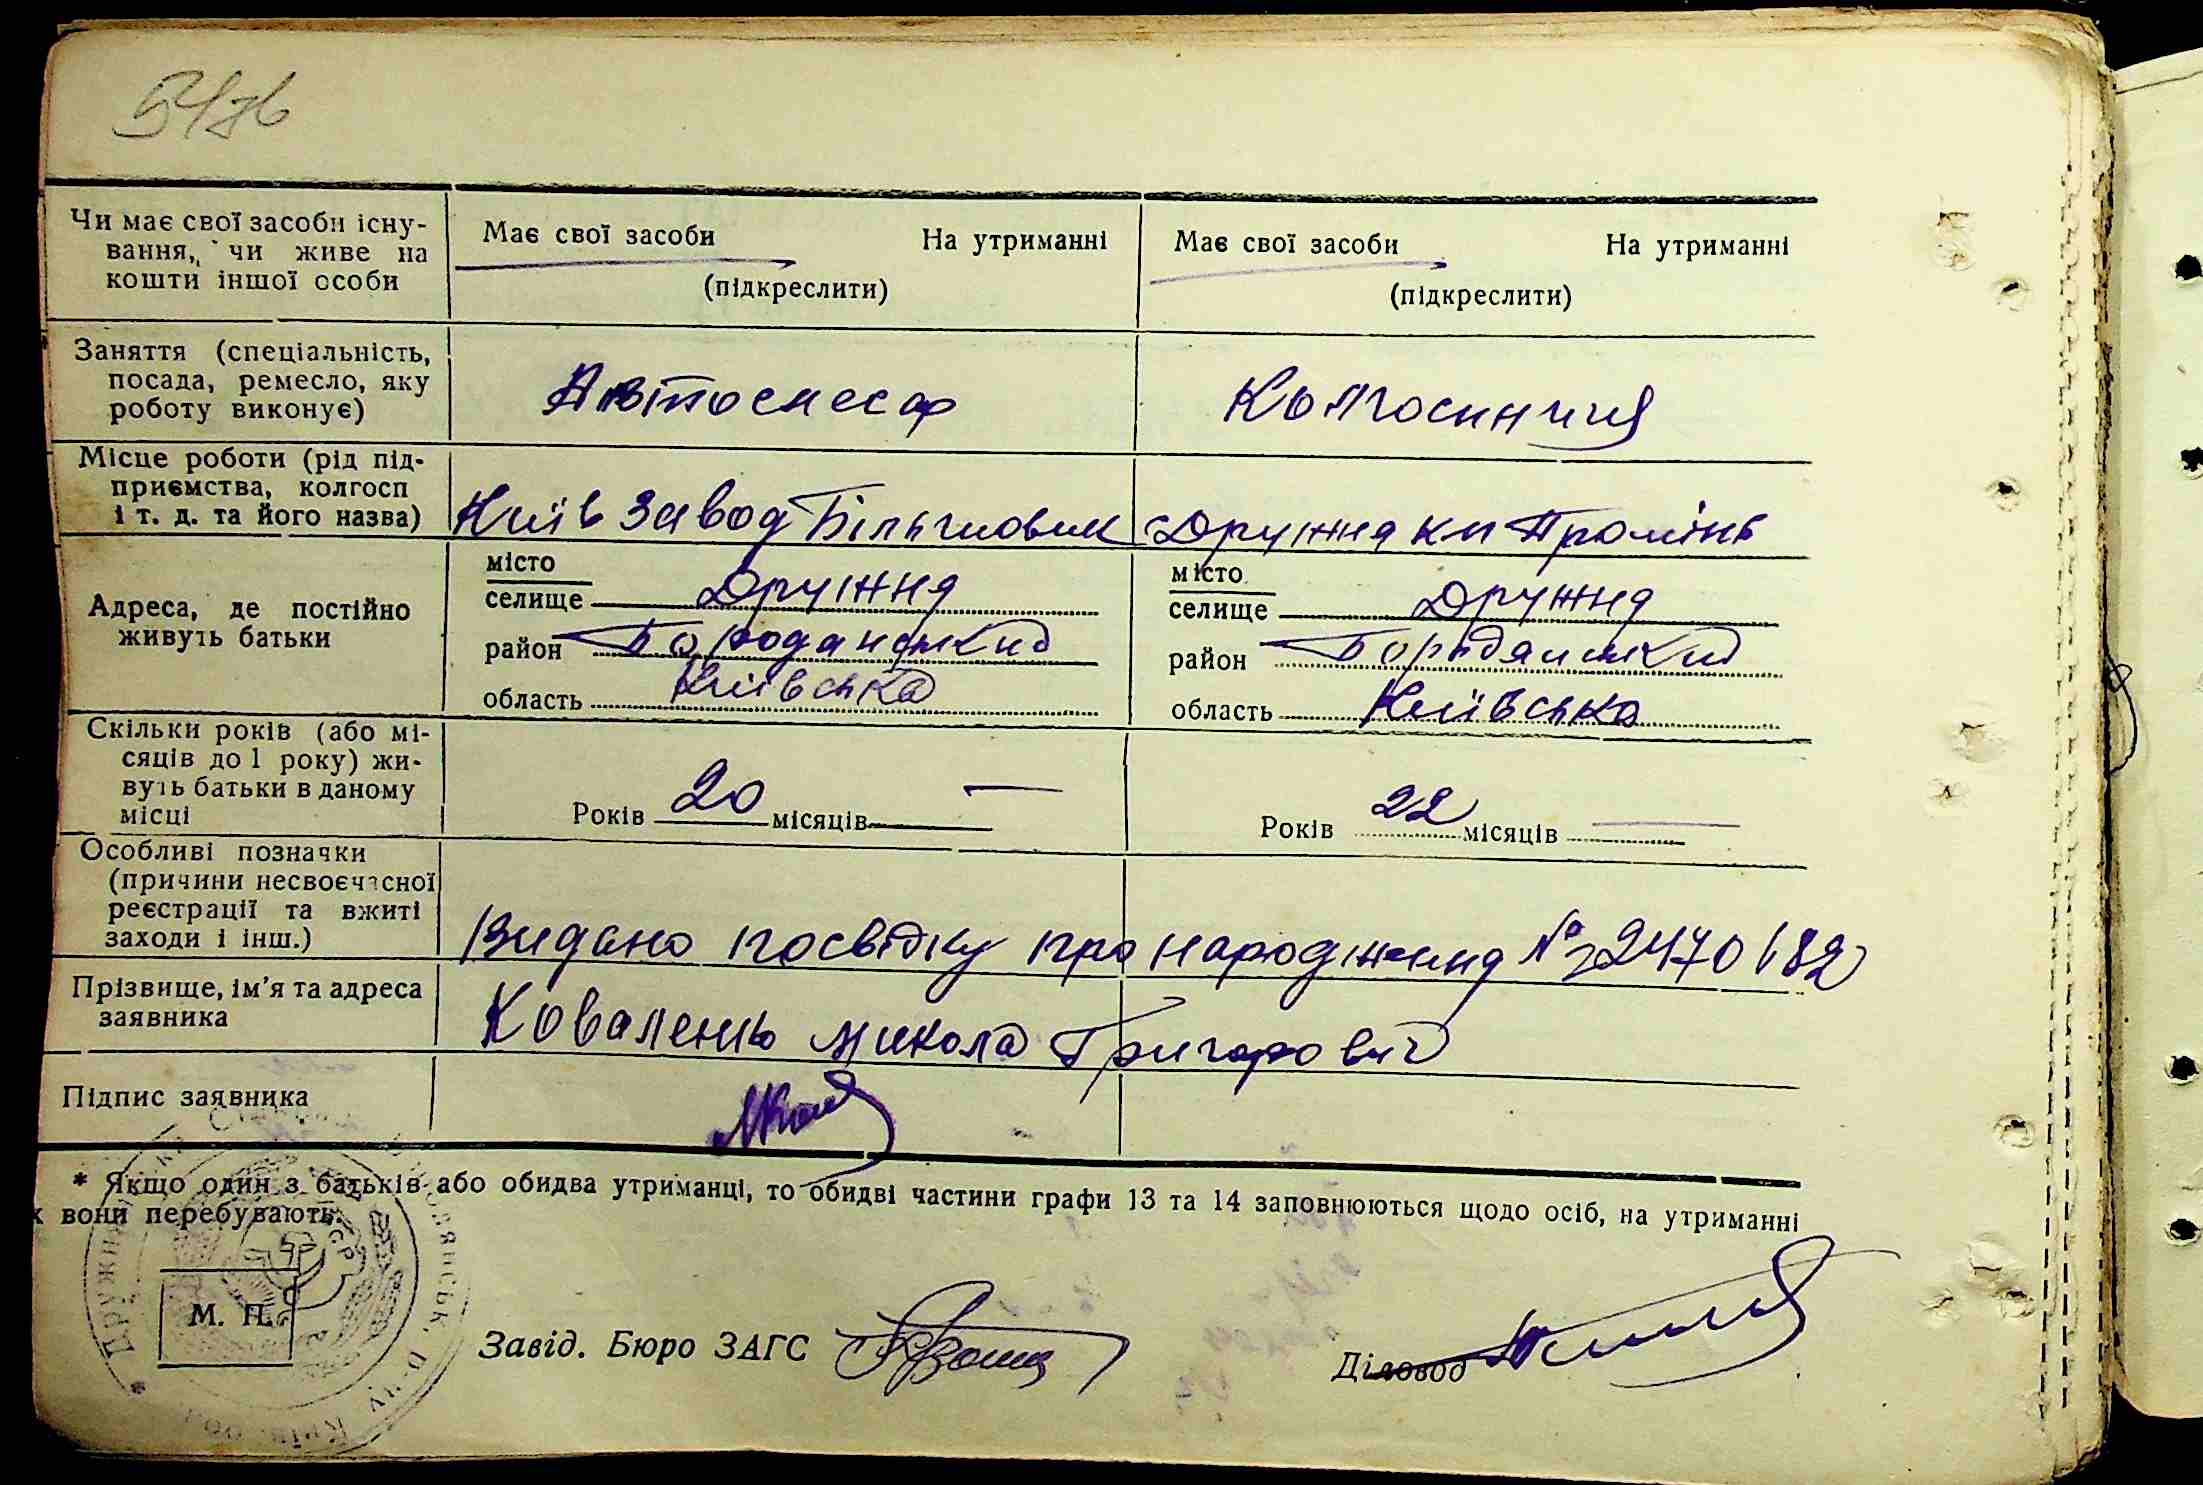 Чи має свої засоби існу-
вання, чи живе на
кошти іншої особи
Має свої засоби На утриманні
(підкреслити)
Має свої засоби На утриманні
(підкреслити)
Заняття (спеціальність,
посада, ремесло, яку
роботу виконує)
Автослесар
Колгосниця
Місце роботи (рід під-
приємства, колгосп
і т. д. та його назва)
Київ Завод Більшовик
Дружня кп Промінь
Адреса, де постійно
живуть батьки
місто
селище Дружня
район Бородянський
область Київська
місто
селище Дружня
район Бородянський
область Київська
Скільки років (або мі-
сяців до 1 року) жи-
вуть батьки в даному
місці
Років 20 місяців —
Років 22 місяців —
Особливі позначки
(причини несвоєчасної
реєстрації та вжиті
заходи і інш.)
Видано посвідку про народження №
Прізвище, ім'я та адреса
заявника
Коваленко Микола Григорович
Підпис заявника
* Якщо один з батьків або обидва утриманці, то обидві частини графи 13 та 14 заповнюються щодо осіб, на утриманні
х вони перебувають.
М. П.
Завід. Бюро ЗАГС
Діловод